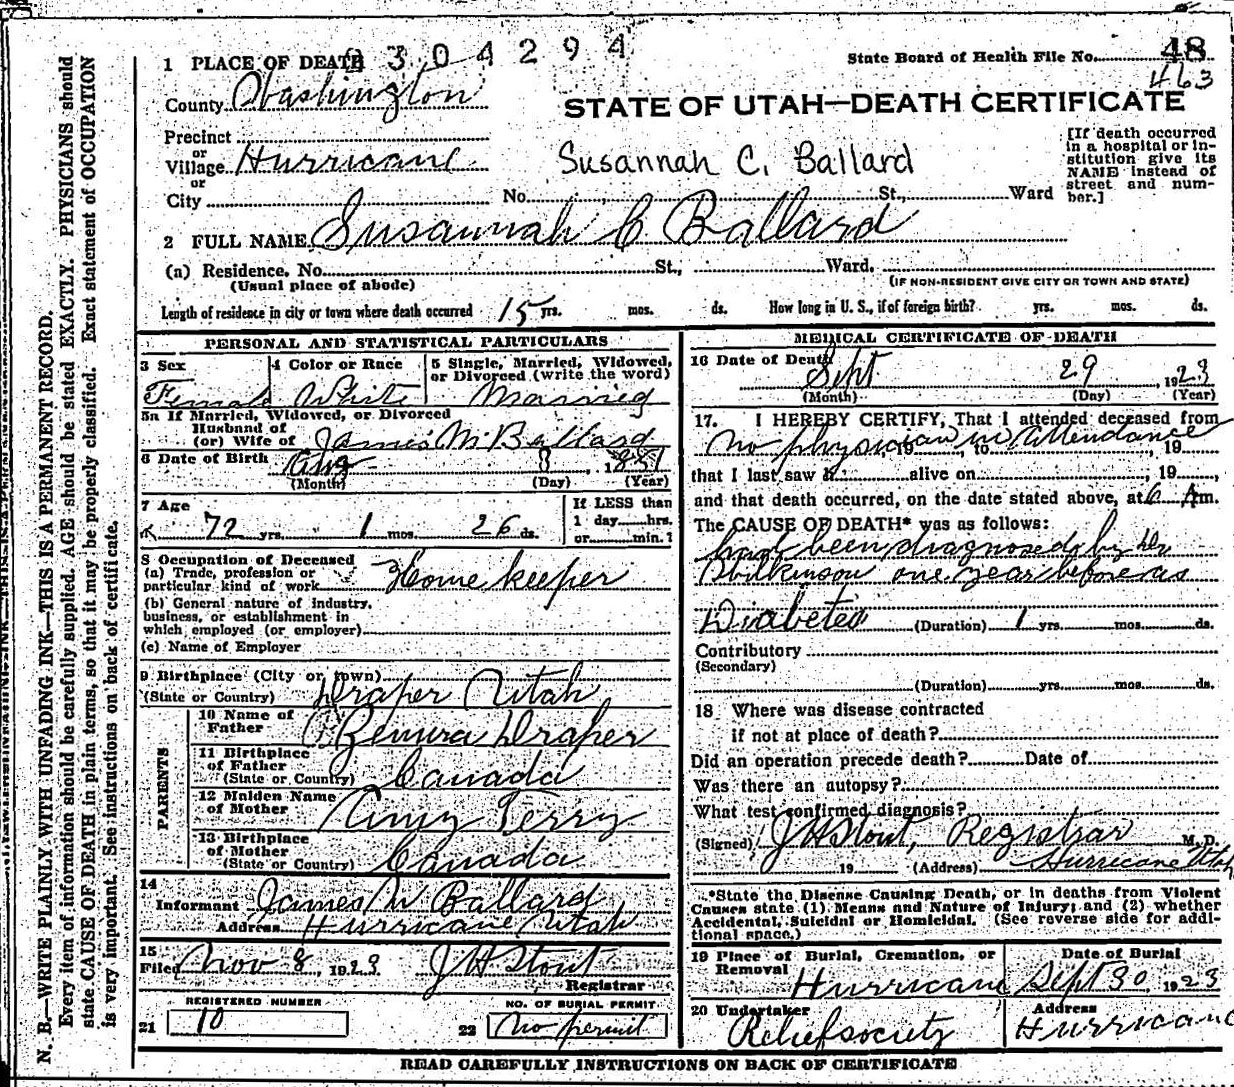 2304294
State Board of Health File No. 48
463
1 PLACE OF DEATH
County Washington
STATE OF UTAH—DEATH CERTIFICATE
Precinct
or
Village Hurricane
or
City
Susannah C. Ballard
No. St., Ward
[If death occurred in a hospital or in-stitution give its NAME instead of street and num-ber.]
2 FULL NAME Susannah C Ballard
(a) Residence. No. St., Ward.
(Usual place of abode) (IF NON-RESIDENT GIVE CITY OR TOWN AND STATE)
Length of residence in city or town where death occurred 15 yrs. mos. ds. How long in U. S., if of foreign birth? yrs. mos. ds.
PERSONAL AND STATISTICAL PARTICULARS
3 Sex Female
4 Color or Race White
5 Single, Married, Widowed, or Divorced (write the word) Married
5a If Married, Widowed, or Divorced
Husband of
(or) Wife of James M Ballard
6 Date of Birth Aug 3, 1851
(Month) (Day) (Year)
7 Age 72 yrs. 1 mos. 26 ds.
If LESS than
1 day hrs.
or min.?
8 Occupation of Deceased
(a) Trade, profession or
particular kind of work Home keeper
(b) General nature of industry,
business, or establishment in
which employed (or employer)
(c) Name of Employer
9 Birthplace (City or town)
(State or Country) Draper Utah
PARENTS
10 Name of Father Zemira Draper
11 Birthplace of Father
(State or Country) Canada
12 Maiden Name of Mother Amy Terry
13 Birthplace of Mother
(State or Country) Canada
14
Informant James W Ballard
Address Hurricane Utah
15
Filed Nov 8, 1923 J H Stout
Registrar
REGISTERED NUMBER
21 10
NO. OF BURIAL PERMIT
22 No permit
MEDICAL CERTIFICATE OF DEATH
16 Date of Death
Sept 29, 1923
(Month) (Day) (Year)
17. I HEREBY CERTIFY, That I attended deceased from
no physician in attendance, 19, to 19
that I last saw h alive on, 19,
and that death occurred, on the date stated above, at 6 A m.
The CAUSE OF DEATH* was as follows:
had been diagnosed by Dr
Wilkinson one year before as
Diabetes (Duration) 1 yrs. mos. ds.
Contributory
(Secondary)
(Duration) yrs. mos. ds.
18 Where was disease contracted
if not at place of death?
Did an operation precede death? Date of
Was there an autopsy?
What test confirmed diagnosis?
(Signed) J H Stout, Registrar M. D.
19 (Address) Hurricane Utah
*State the Disease Causing Death, or in deaths from Violent
Causes state (1) Means and Nature of Injury; and (2) whether
Accidental, Suicidal or Homicidal. (See reverse side for addi-
tional space.)
19 Place of Burial, Cremation, or Removal
Hurricane
Date of Burial
Sept 30 1923
20 Undertaker
Relief society
Address
Hurricane
READ CAREFULLY INSTRUCTIONS ON BACK OF CERTIFICATE
N. B.—WRITE PLAINLY WITH UNFADING INK—THIS IS A PERMANENT RECORD.
Every item of information should be carefully supplied. AGE should be stated EXACTLY. PHYSICIANS should
state CAUSE OF DEATH in plain terms, so that it may be properly classified. Exact statement of OCCUPATION
is very important. See instructions on back of certificate.